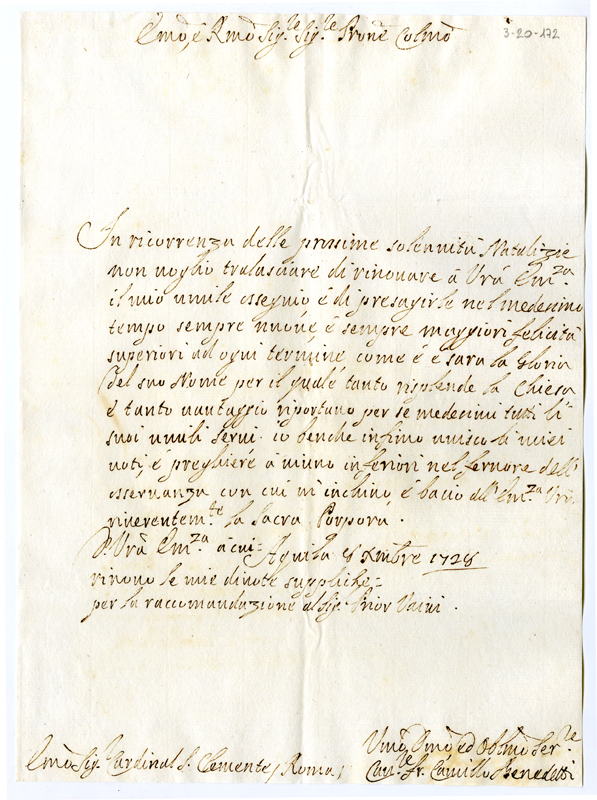 Emo, e Rmo Sig.re Sig.re Prone Colmo
3-20-172
In ricorrenza delle prossime solennità Natalizie
non voglio tralasciare di rinovare à Vrà Em.za
il mio umile ossequio é di presagirle nel medesimo
tempo sempre nuove é sempre maggiori felicità
superiori ad ogni termine come é é sarà la Gloria
del suo Nome per il quale tanto risplende la Chiesa
é tanto vantaggio riportano per se medesimi tutti li
suoi umili servi. io benche infimo unisco li miei
voti, é preghiere à niuno inferiori nel fervore dell'
osservanza con cui m'inchino, é bacio all' Em.za Vrà
riverentem.te la Sacra Porpora.
D. Vrà Em.za à cui= Aquila 8 Xmbre 1728
rinovo le mie divote suppliche=
per la raccomandazione al Sig. Prior Vaini.
Emo Sig. Cardinal S. Clemente, Roma,
Umo, Dmo ed Oblmo Ser.re
Cav.re Fr. Camillo Benedetti